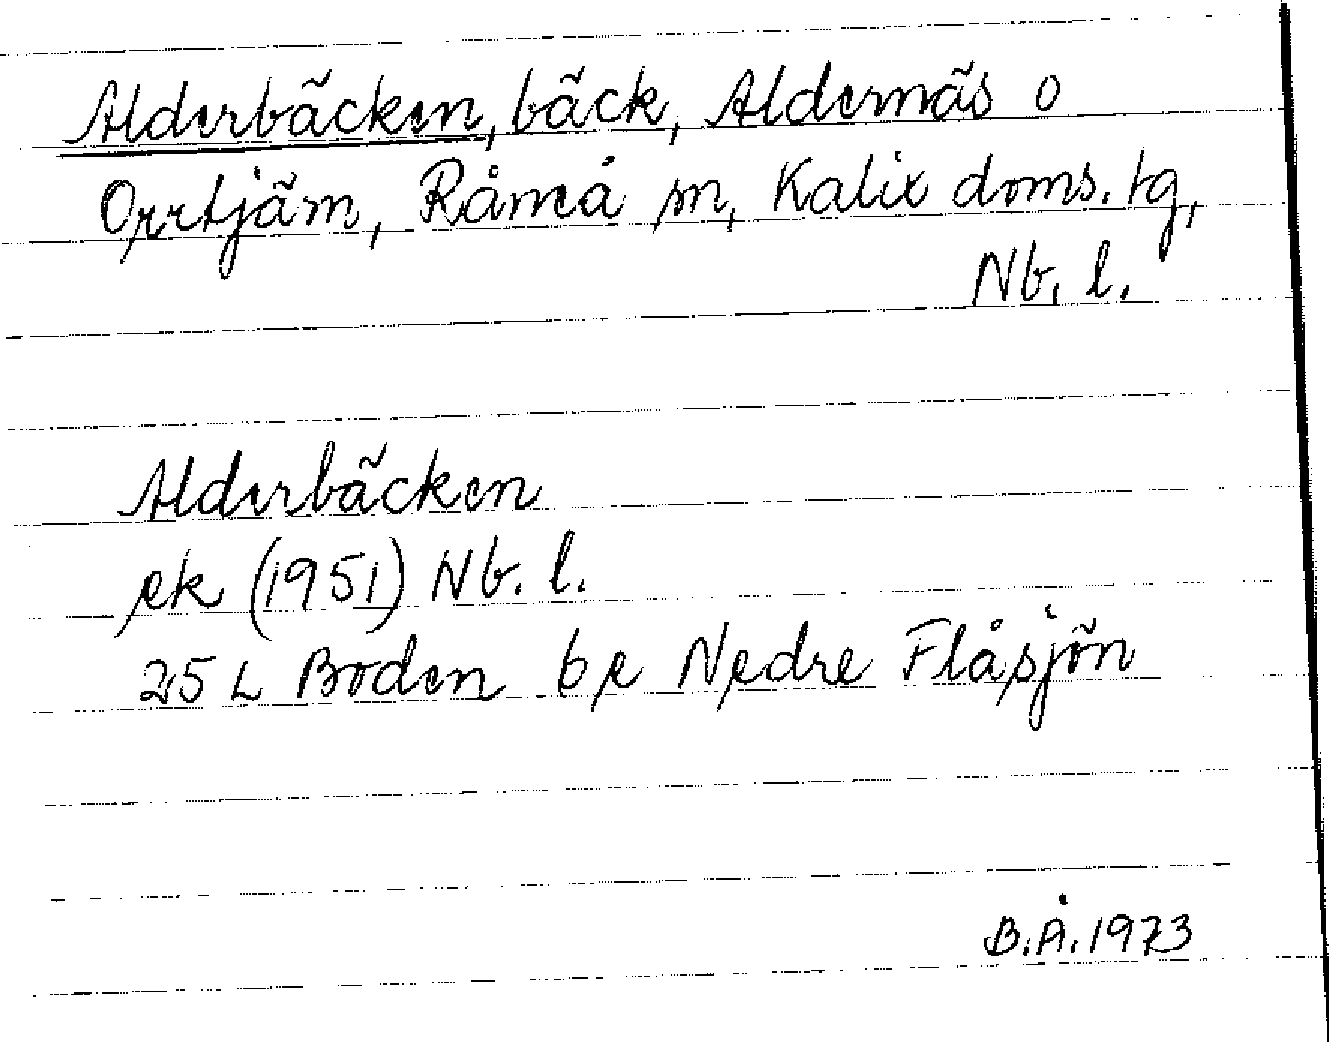 Alderbäcken, bäck, Aldernäs o
Orrtjärn, Råneå sn, Kalix doms. tg,
Nb. l.
Alderbäcken
ek (1951) Nb. l.
25 L Boden 6 e Nedre Flåsjön
B.Å. 1973